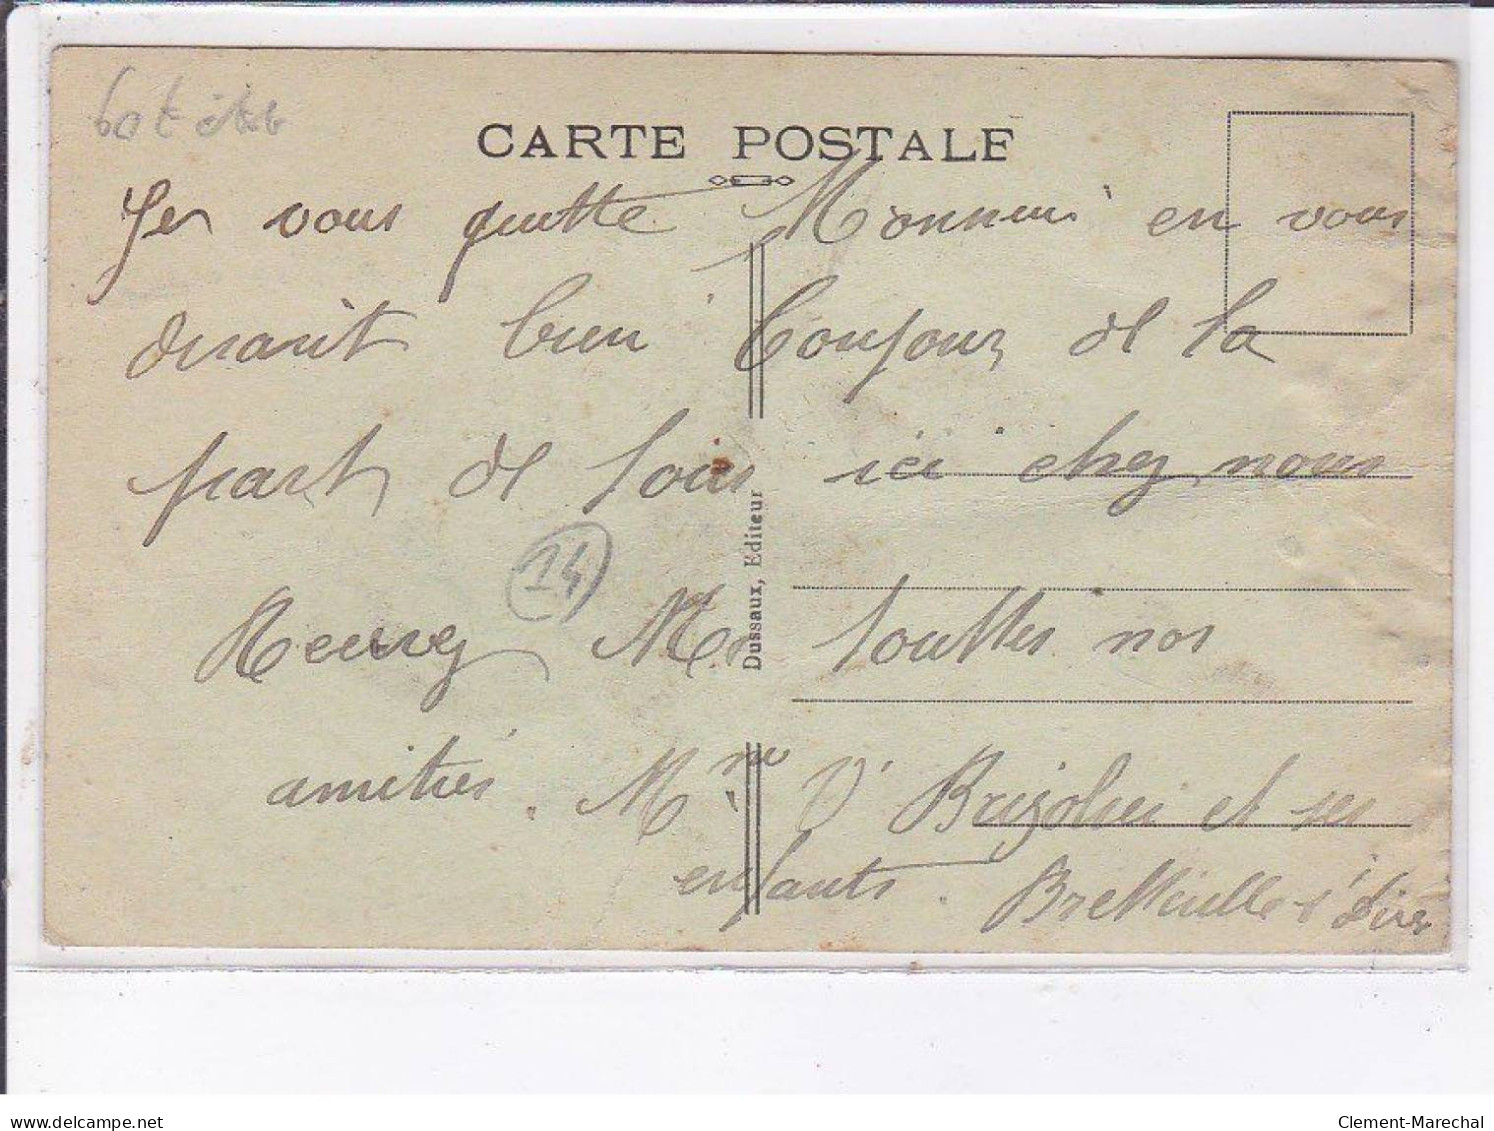 CARTE POSTALE
Jer vous quitte Monneui en vous
disant bien Bonjour de la
part de tous ici chez nous
14
Recevez Mr touttes nos
amitiés. Mme Ve Brizolier et ses
enfants. Bretteville s'dives
Dussaux, Editeur
delcampe.net
Clement-Marechal